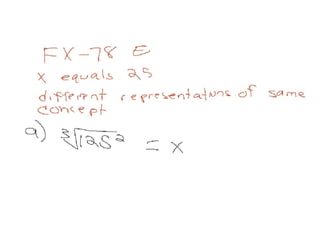 FX-78 E
x equals 25
different representations of same
concept
a) ∛125² = x